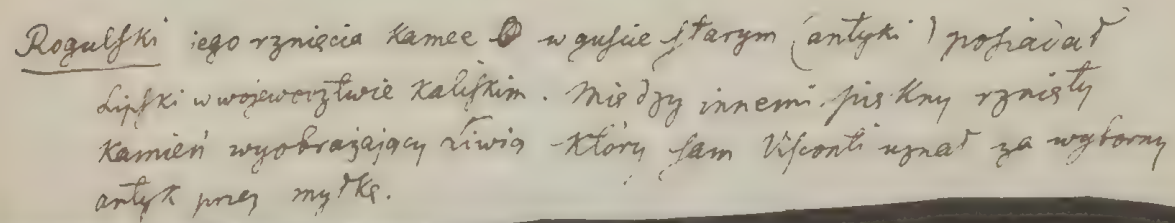 Rogulſki iego rznięcia Kamee w guſcie ſtarym (antyki) poſiadał
Lipſki w wojewoztwie Kaliſkim. Między innemi piękny rznięty
Kamień wyobrażający Liwią Który ſam Viſconti uznał za wyborny
antyk przez myłkę.